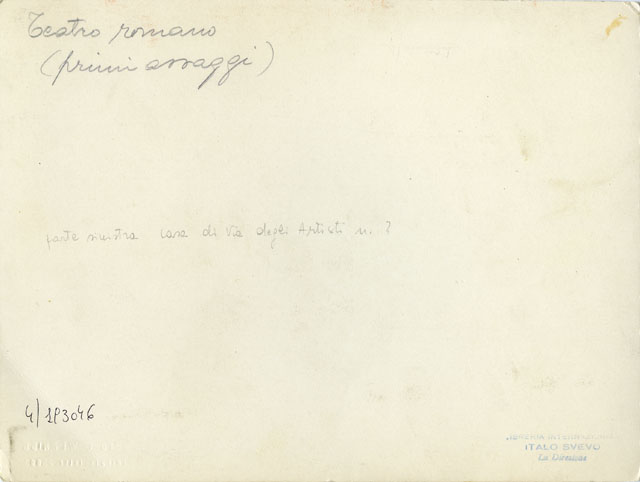 Teatro romano
(primi assaggi)
parte sinistra casa di Via degli Artisti n. ?
4/193046
LIBRERIA INTERNAZIONALE
ITALO SVEVO
La Direzione